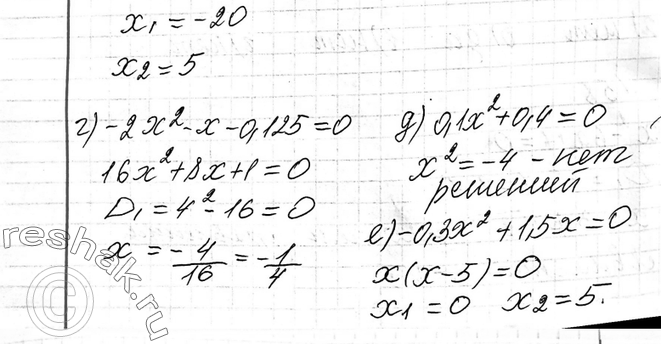 x₁ = -20
x₂ = 5
г) -2x² - x - 0,125 = 0
16x² + 8x + 1 = 0
D₁ = 4² - 16 = 0
x = -4/16 = -1/4
д) 0,1x² + 0,4 = 0
x² = -4 - нет
решений
е) -0,3x² + 1,5x = 0
x(x - 5) = 0
x₁ = 0 x₂ = 5.
reshak.ru